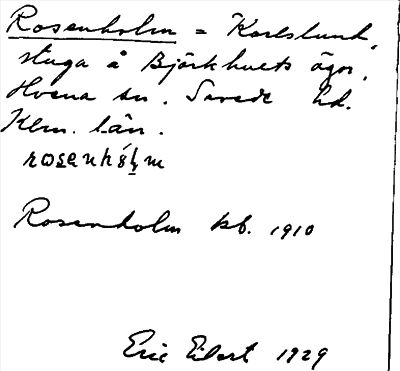 Rosenholm = Karlslund,
stuga å Björkhults ägor,
Hvena sn. Sevede hd.
Klm. län.
Rosenholm kb. 1910
Eric Eilert 1929